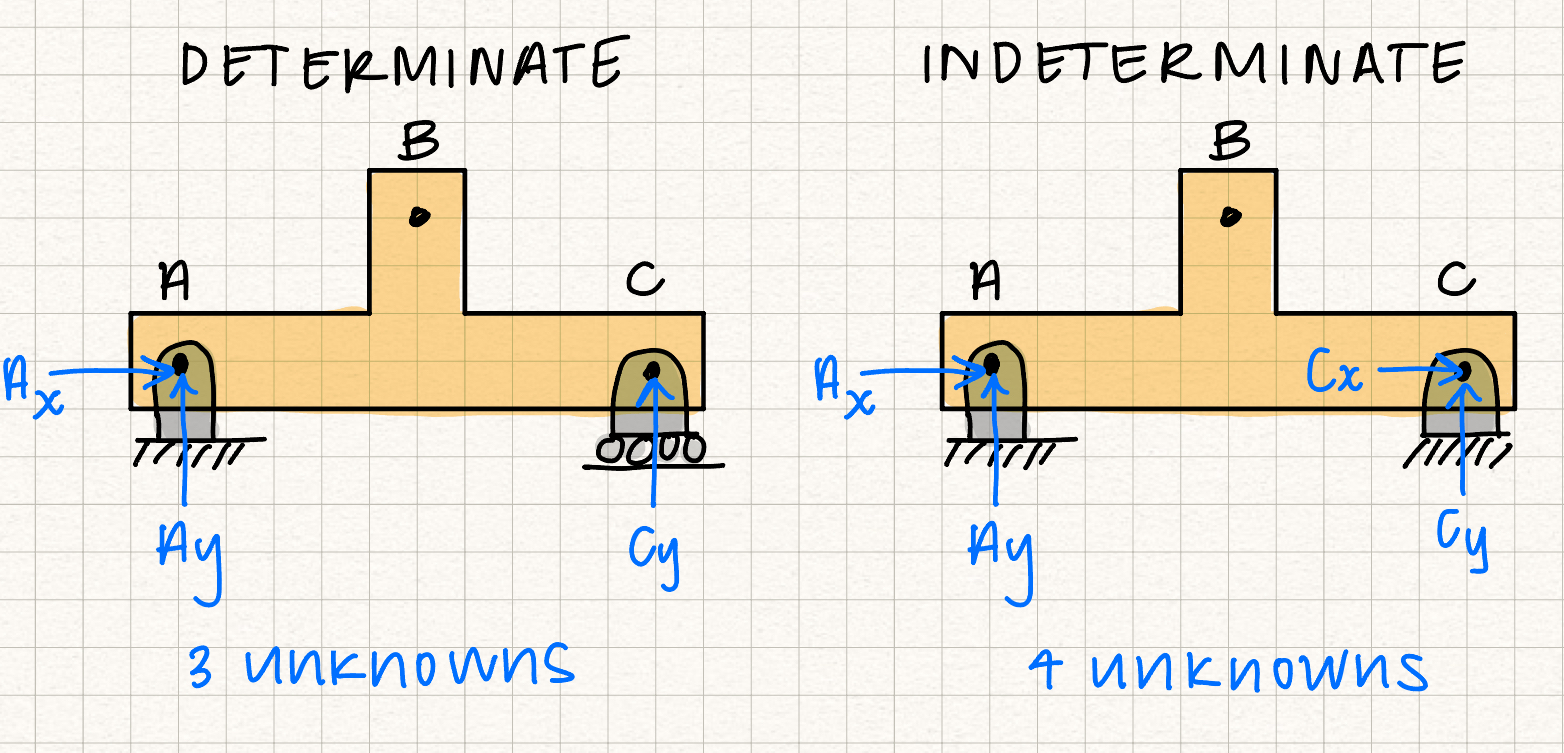 DETERMINATE
B
A
C
Ax
Ay
Cy
3 unknowns
INDETERMINATE
B
A
C
Ax
Cx
Ay
Cy
4 unknowns